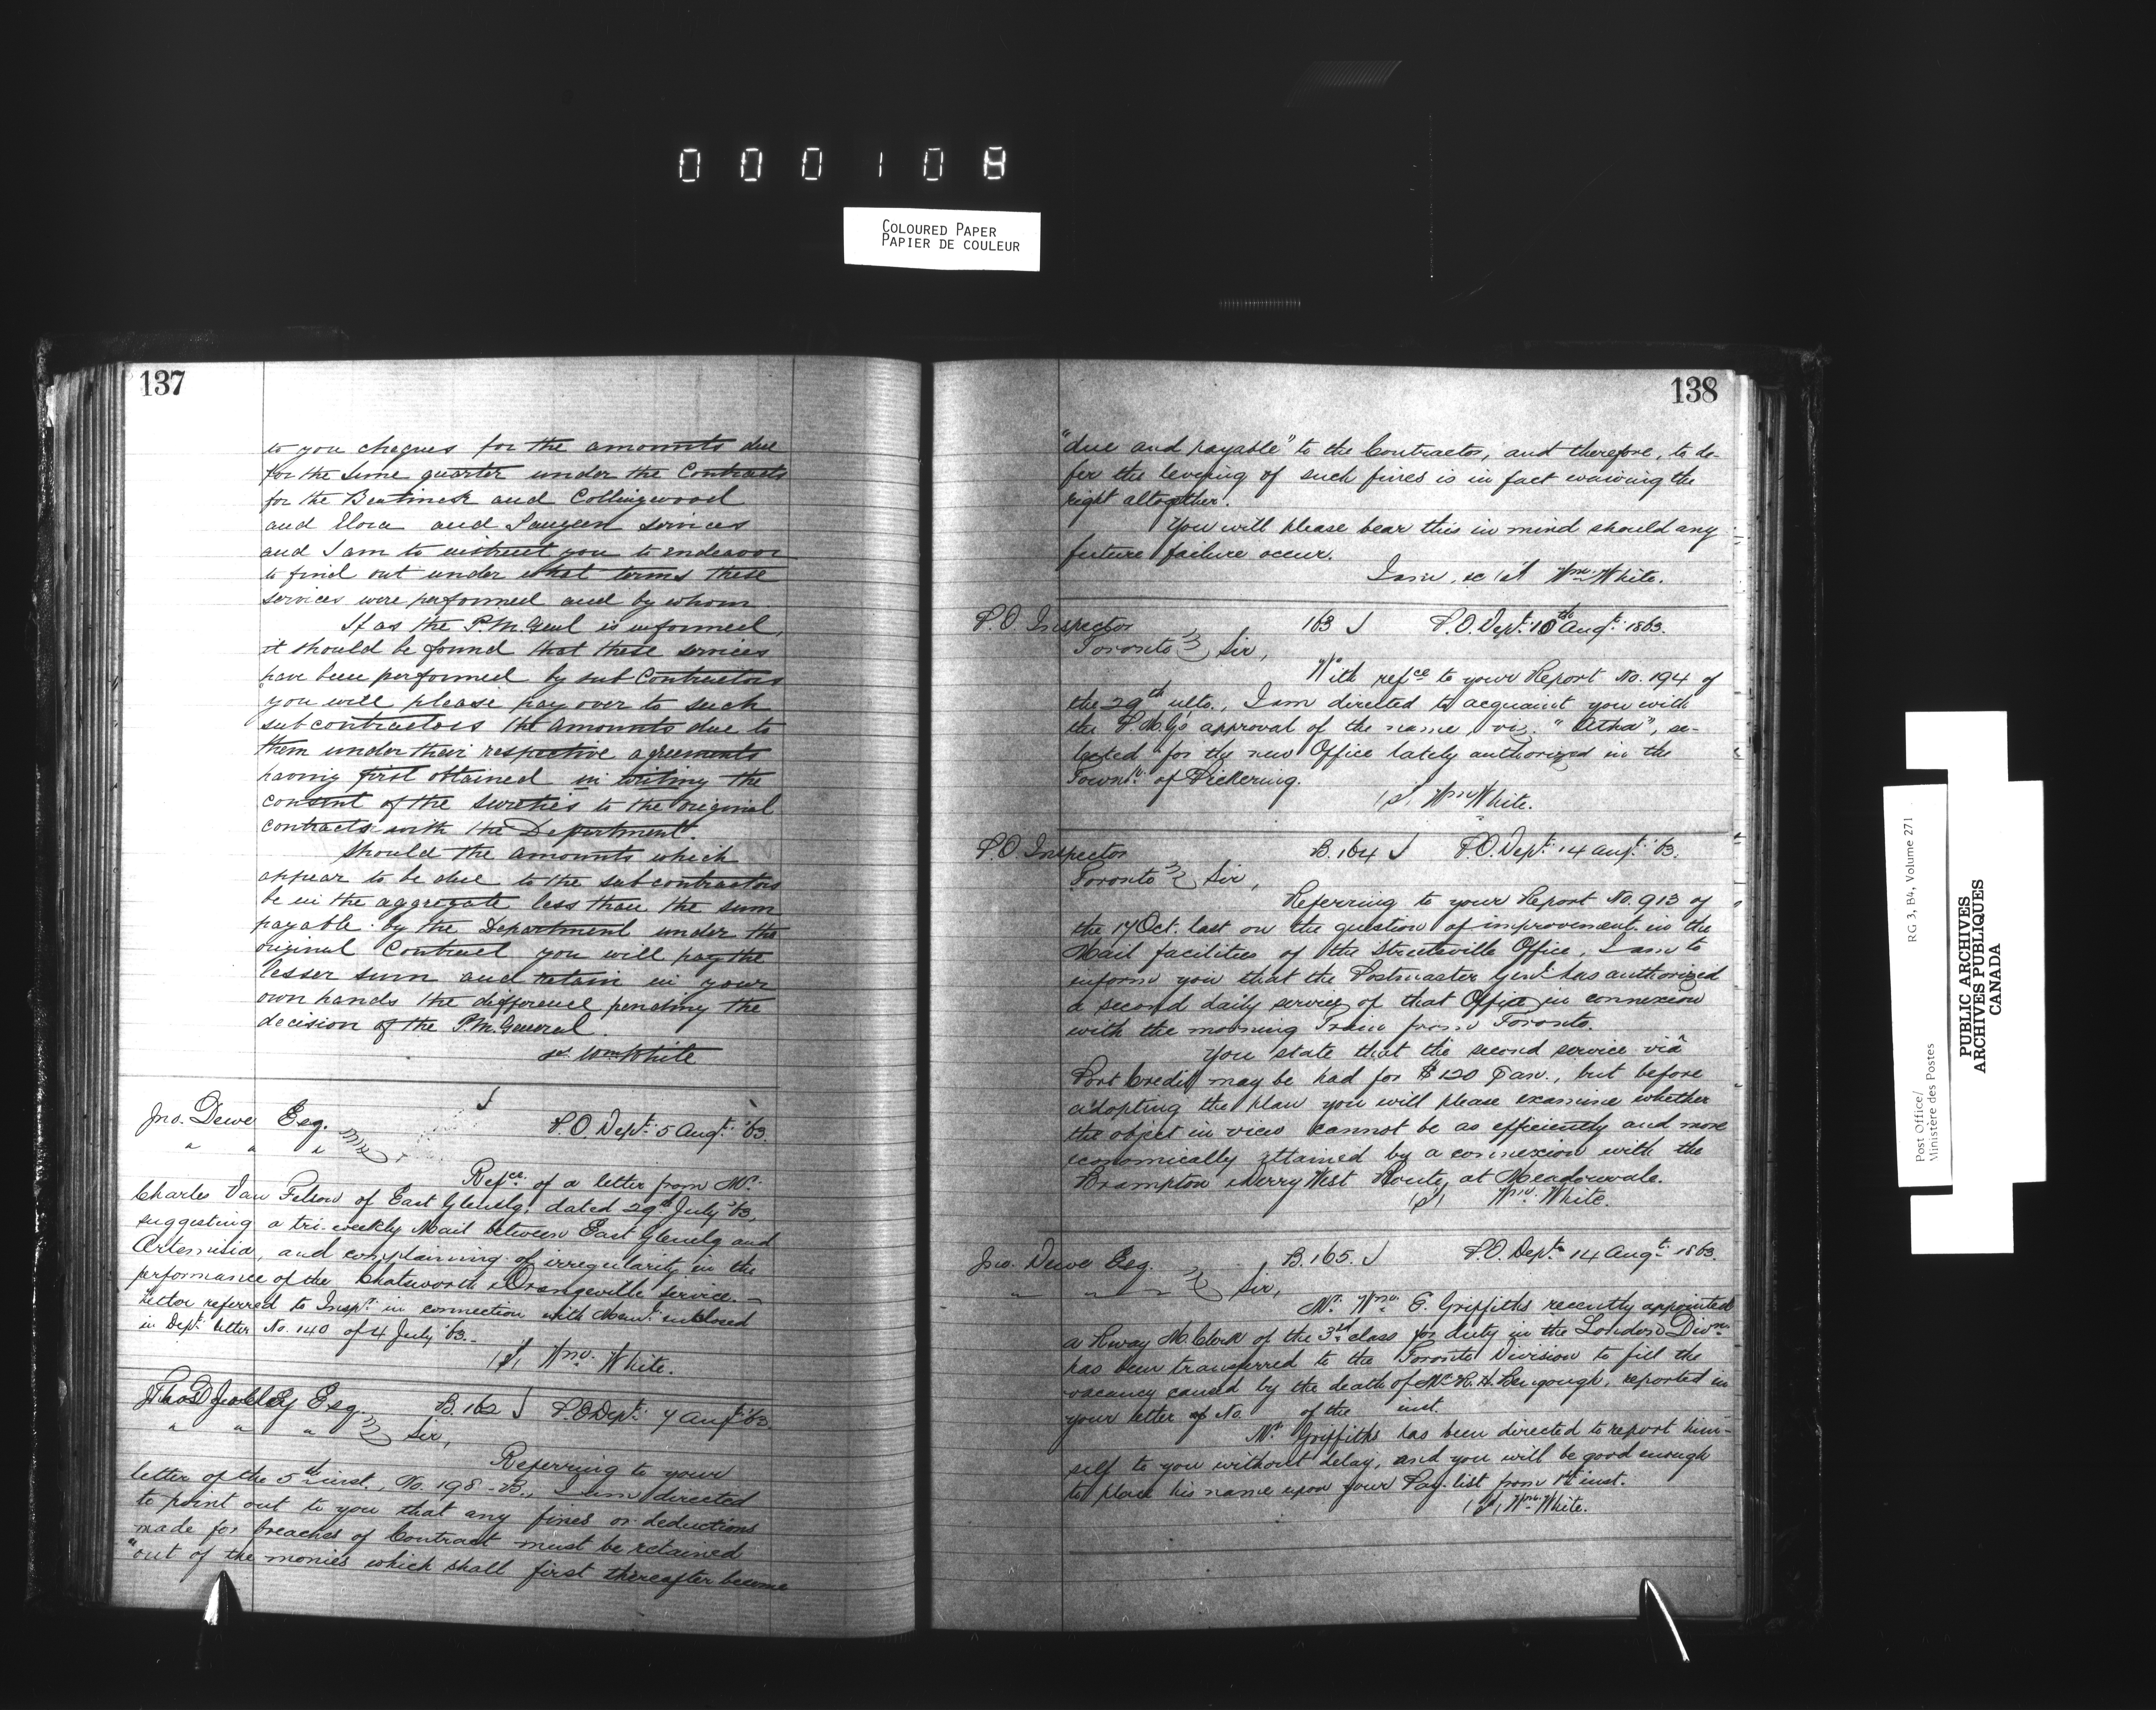 000108
COLOURED PAPER
PAPIER DE COULEUR
137
to you cheques for the amounts due
for the June quarter under the Contracts
for the Bentinck and Collingwood
and Elora and Saugeen services
and I am to instruct you to endeavor
to find out under what terms these
services were performed and by whom
If as the P.M. Genl is informed,
it should be found that these services
have been performed by sub Contractors
you will please pay over to such
sub contractors the amounts due to
them under their respective agreements
having first obtained in writing the
consent of the sureties to the original
contracts with the Department.
Should the amounts which
appear to be due to the sub contractors
be in the aggregate less than the sum
payable by the Department under the
original Contract you will pay the
lesser sum and retain in your
own hands the difference pending the
decision of the P.M. General.
sd. Wm White
Jno. Dewe Esq.
P.O. Dept. 5 Augt. '63.
" " "
Refce. of a letter from Mr.
Charles Van Felson of East Glenelg, dated 29th July '63,
suggesting a tri-weekly Mail between East Glenelg and
Artemisia, and complaining of irregularity in the
performance of the Chatsworth & Orangeville service.—
Letter referred to Inspr. in connection with Meml. enclosed
in Dept. letter No. 140 of 4 July '63.—
(sd) Wm. White.
Esq. B.162 P.O Dept. 7 Augt. '63
" " " Sir,
Referring to your
letter of the 5th inst., No. 198-B., I am directed
to point out to you that any fines or deductions
made for breaches of Contract must be retained
"out of the monies which shall first thereafter become
138
"due and payable" to the Contractor, and therefore, to de-
fer the levying of such fines is in fact waiving the
right altogether.
You will please bear this in mind should any
future failure occur.
I am, &c (sd) Wm. White.
P.O. Inspector 163 P.O. Dept. 10th Augt. 1863.
Toronto Sir,
With refce to your Report No. 194 of
the 29th ulto., I am directed to acquaint you with
the P.M.G's approval of the name, viz. "Altha", se-
lected for the new Office lately authorized in the
Townp. of Pickering.
(sd) Wm White.
P.O. Inspector B.164 P.O. Dept. 14 Augt. '63.
Toronto Sir,
Referring to your Report No. 913 of
the 17 Oct. last on the question of improvement in the
Mail facilities of the Streetsville Office, I am to
inform you that the Postmaster Genl. has authorized
a second daily service of that Office in connexion
with the morning Train from Toronto.
You state that the second service viâ
Port Credit may be had for $120 p an., but before
adopting the plan you will please examine whether
the object in view cannot be as efficiently and more
economically attained by a connexion with the
Brampton & Derry West Route, at Meadowvale.
(sd) Wm. White.
Jno. Dewe Esq. B.165. P.O. Dept. 14 Augt. 1863.
" " " Sir,
Mr. Wm. E. Griffiths recently appointed
a Rway M. Clerk of the 3rd class for duty in the London Divn.
has been transferred to the Toronto Division to fill the
vacancy caused by the death of Mr. H. H. Bengough, reported in
your letter of No. of the inst.
Mr. Griffiths has been directed to report him-
self to you without delay, and you will be good enough
to place his name upon your Pay-list from 1st inst.
(sd) Wm. White.
Post Office/
Ministère des Postes
RG 3, B4, Volume 271
PUBLIC ARCHIVES
ARCHIVES PUBLIQUES
CANADA